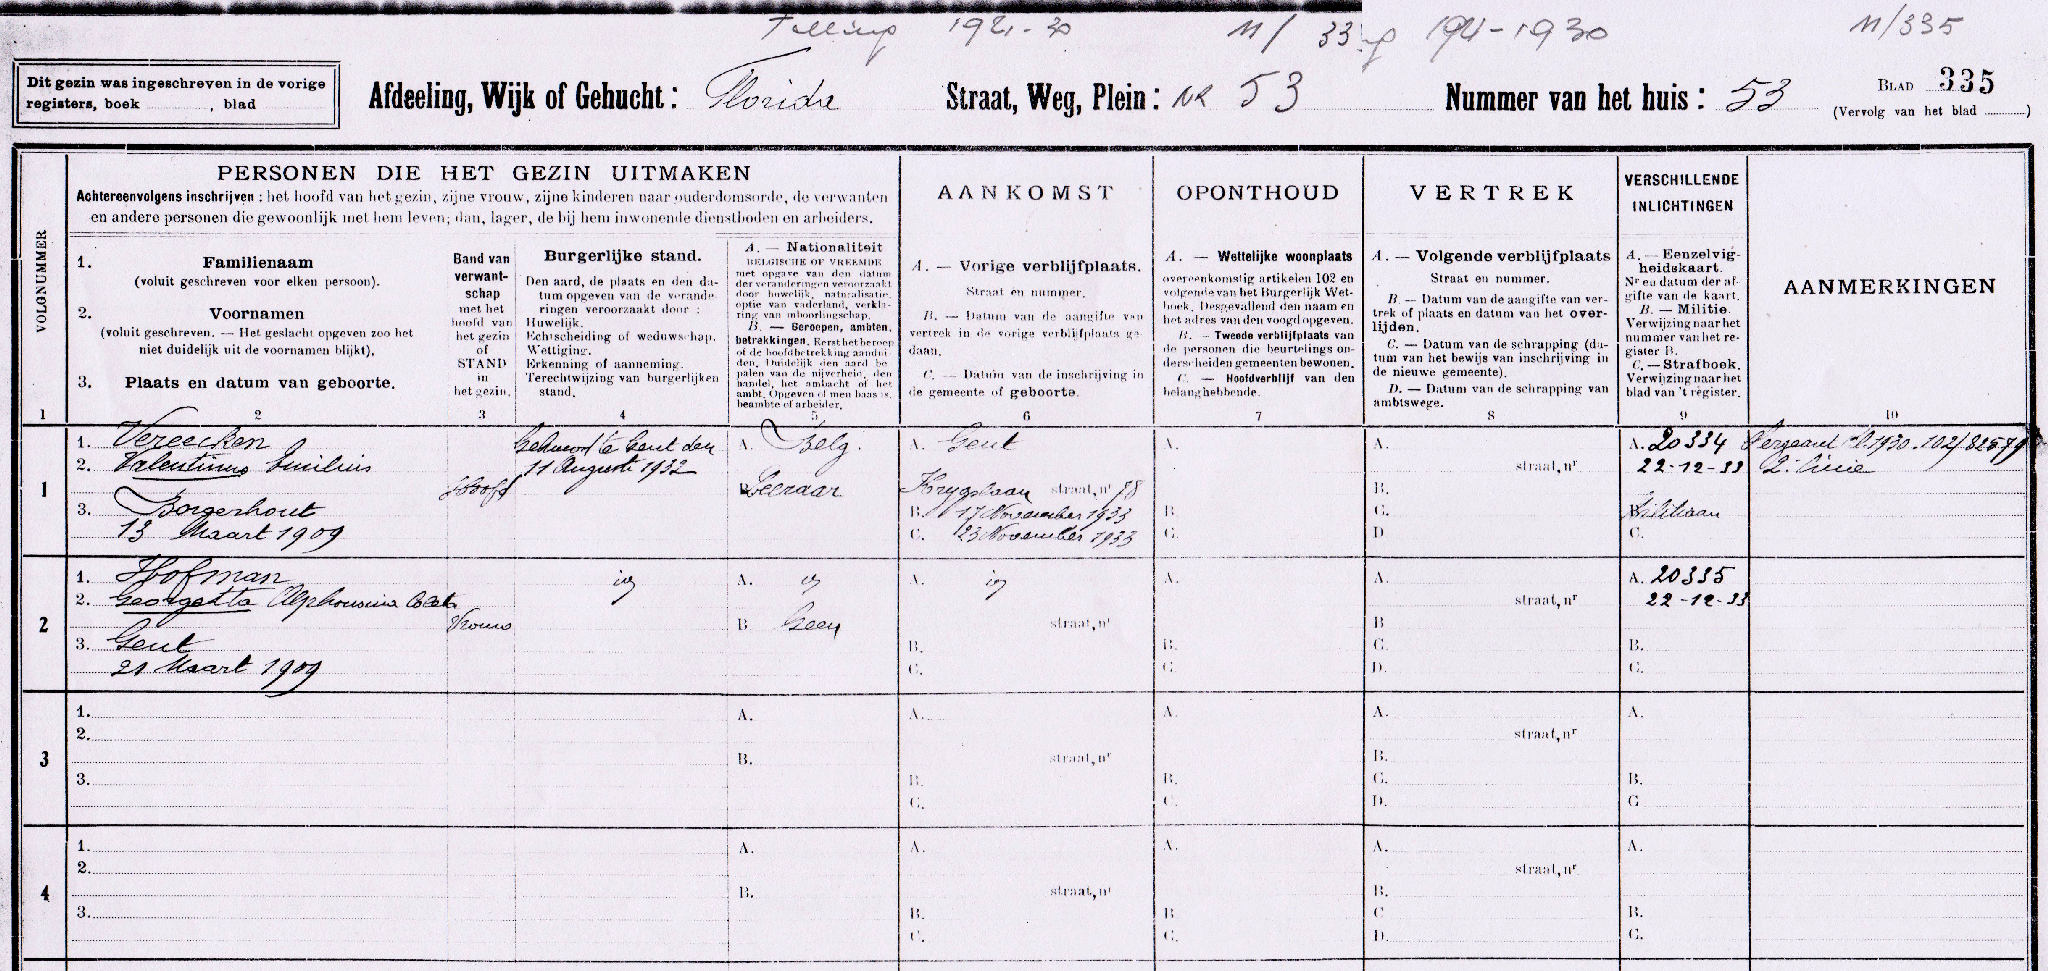 Telling 1921-30 11/ 33 g 1921-1930 11/335
Dit gezin was ingeschreven in de vorige
registers, boek , blad
Afdeeling, Wijk of Gehucht: Floride Straat, Weg, Plein: NR 53 Nummer van het huis: 53
BLAD 335
(Vervolg van het blad )
VOLGNUMMER
PERSONEN DIE HET GEZIN UITMAKEN
Achtereenvolgens inschrijven: het hoofd van het gezin, zijne vrouw, zijne kinderen naar ouderdomsorde, de verwanten
en andere personen die gewoonlijk met hem leven; dan, lager, de bij hem inwonende dienstboden en arbeiders.
1. Familienaam
(voluit geschreven voor elken persoon).
2. Voornamen
(voluit geschreven. — Het geslacht opgeven zoo het
niet duidelijk uit de voornamen blijkt).
3. Plaats en datum van geboorte.
Band van
verwant-
schap
met het
hoofd van
het gezin
of
STAND
in
het gezin.
Burgerlijke stand.
Den aard, de plaats en den da-
tum opgeven van de verande-
ringen veroorzaakt door:
Huwelijk.
Echtscheiding of weduwschap.
Wettiging.
Erkenning of aanneming.
Terechtwijzing van burgerlijken
stand.
A. — Nationaliteit
BELGISCHE OF VREEMDE
met opgave van den datum
der veranderingen veroorzaakt
door huwelijk, naturalisatie,
optie van vaderland, verkla-
ring van inboorlingschap.
B. — Geroepen, ambten,
betrekkingen. Eerst het beroep
of de hoofdbetrekking aandui-
den. Duidelijk den aard be-
palen van de nijverheid, den
handel, het ambacht of het
ambt. Opgeven of men baas is,
beambte of arbeider.
AANKOMST
A. — Vorige verblijfplaats.
Straat en nummer.
B. — Datum van de aangifte van
vertrek in de vorige verblijfplaats ge-
daan.
C. — Datum van de inschrijving in
de gemeente of geboorte.
OPONTHOUD
A. — Wettelijke woonplaats
overeenkomstig artikelen 102 en
volgende van het Burgerlijk Wet-
boek. Desgevallend den naam en
het adres van den voogd opgeven.
B. — Tweede verblijfplaats van
de personen die beurtelings on-
derscheiden gemeenten bewonen.
C. — Hoofdverblijf van den
belanghebbende.
VERTREK
A. — Volgende verblijfplaats
Straat en nummer.
B. — Datum van de aangifte van ver-
trek of plaats en datum van het over-
lijden.
C. — Datum van de schrapping (da-
tum van het bewijs van inschrijving in
de nieuwe gemeente).
D. — Datum van de schrapping van
ambtswege.
VERSCHILLENDE
INLICHTINGEN
A. — Eenzelvig-
heidskaart.
Nr en datum der af-
gifte van de kaart.
B. — Militie.
Verwijzing naar het
nummer van het re-
gister B.
C. — Strafboek.
Verwijzing naar het
blad van 't register.
AANMERKINGEN
1 2 3 4 5 6 7 8 9 10
1. Vereecken Gehuwd te Gent den A. Belg. A. Gent A. A. A. 20334 Sergeant Kl. 1930 - 102/82579
2. Valentinus Emilius 11 Augusti 1932 straat, nr 22-12-33 2e linie
1 Hoofd B. Leeraar Krijgslaan straat, nr 78 B.
3. Borgerhout B. 17 November 1933 B. C. B. Militiaan
13 Maart 1909 C. 23 November 1933 C. D C.
1. Hofman id A. id A. id A. A. A. 20335
2. Georgetta Alphonsina Coleta straat, nr 22-12-33
2 Vrouw B. Geen straat, nr B
3. Gent B. B. C. B.
21 Maart 1909 C. C. D. C.
1. A. A. A. A. A.
2. straat, nr
3 B. straat, nr B.
3. B. B. C. B.
C. C. D. C
1. A. A. A. A. A.
2. straat, nr
4 B. straat, nr B.
3. B. B C B.
C. C. D. C.